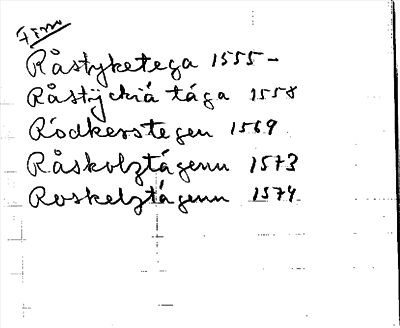 Finno
Råstyketega 1555-
Råstÿckiä tága 1558
Ródkersstegen 1569
Råskolztágenn 1573
Roskelztágenn 1574